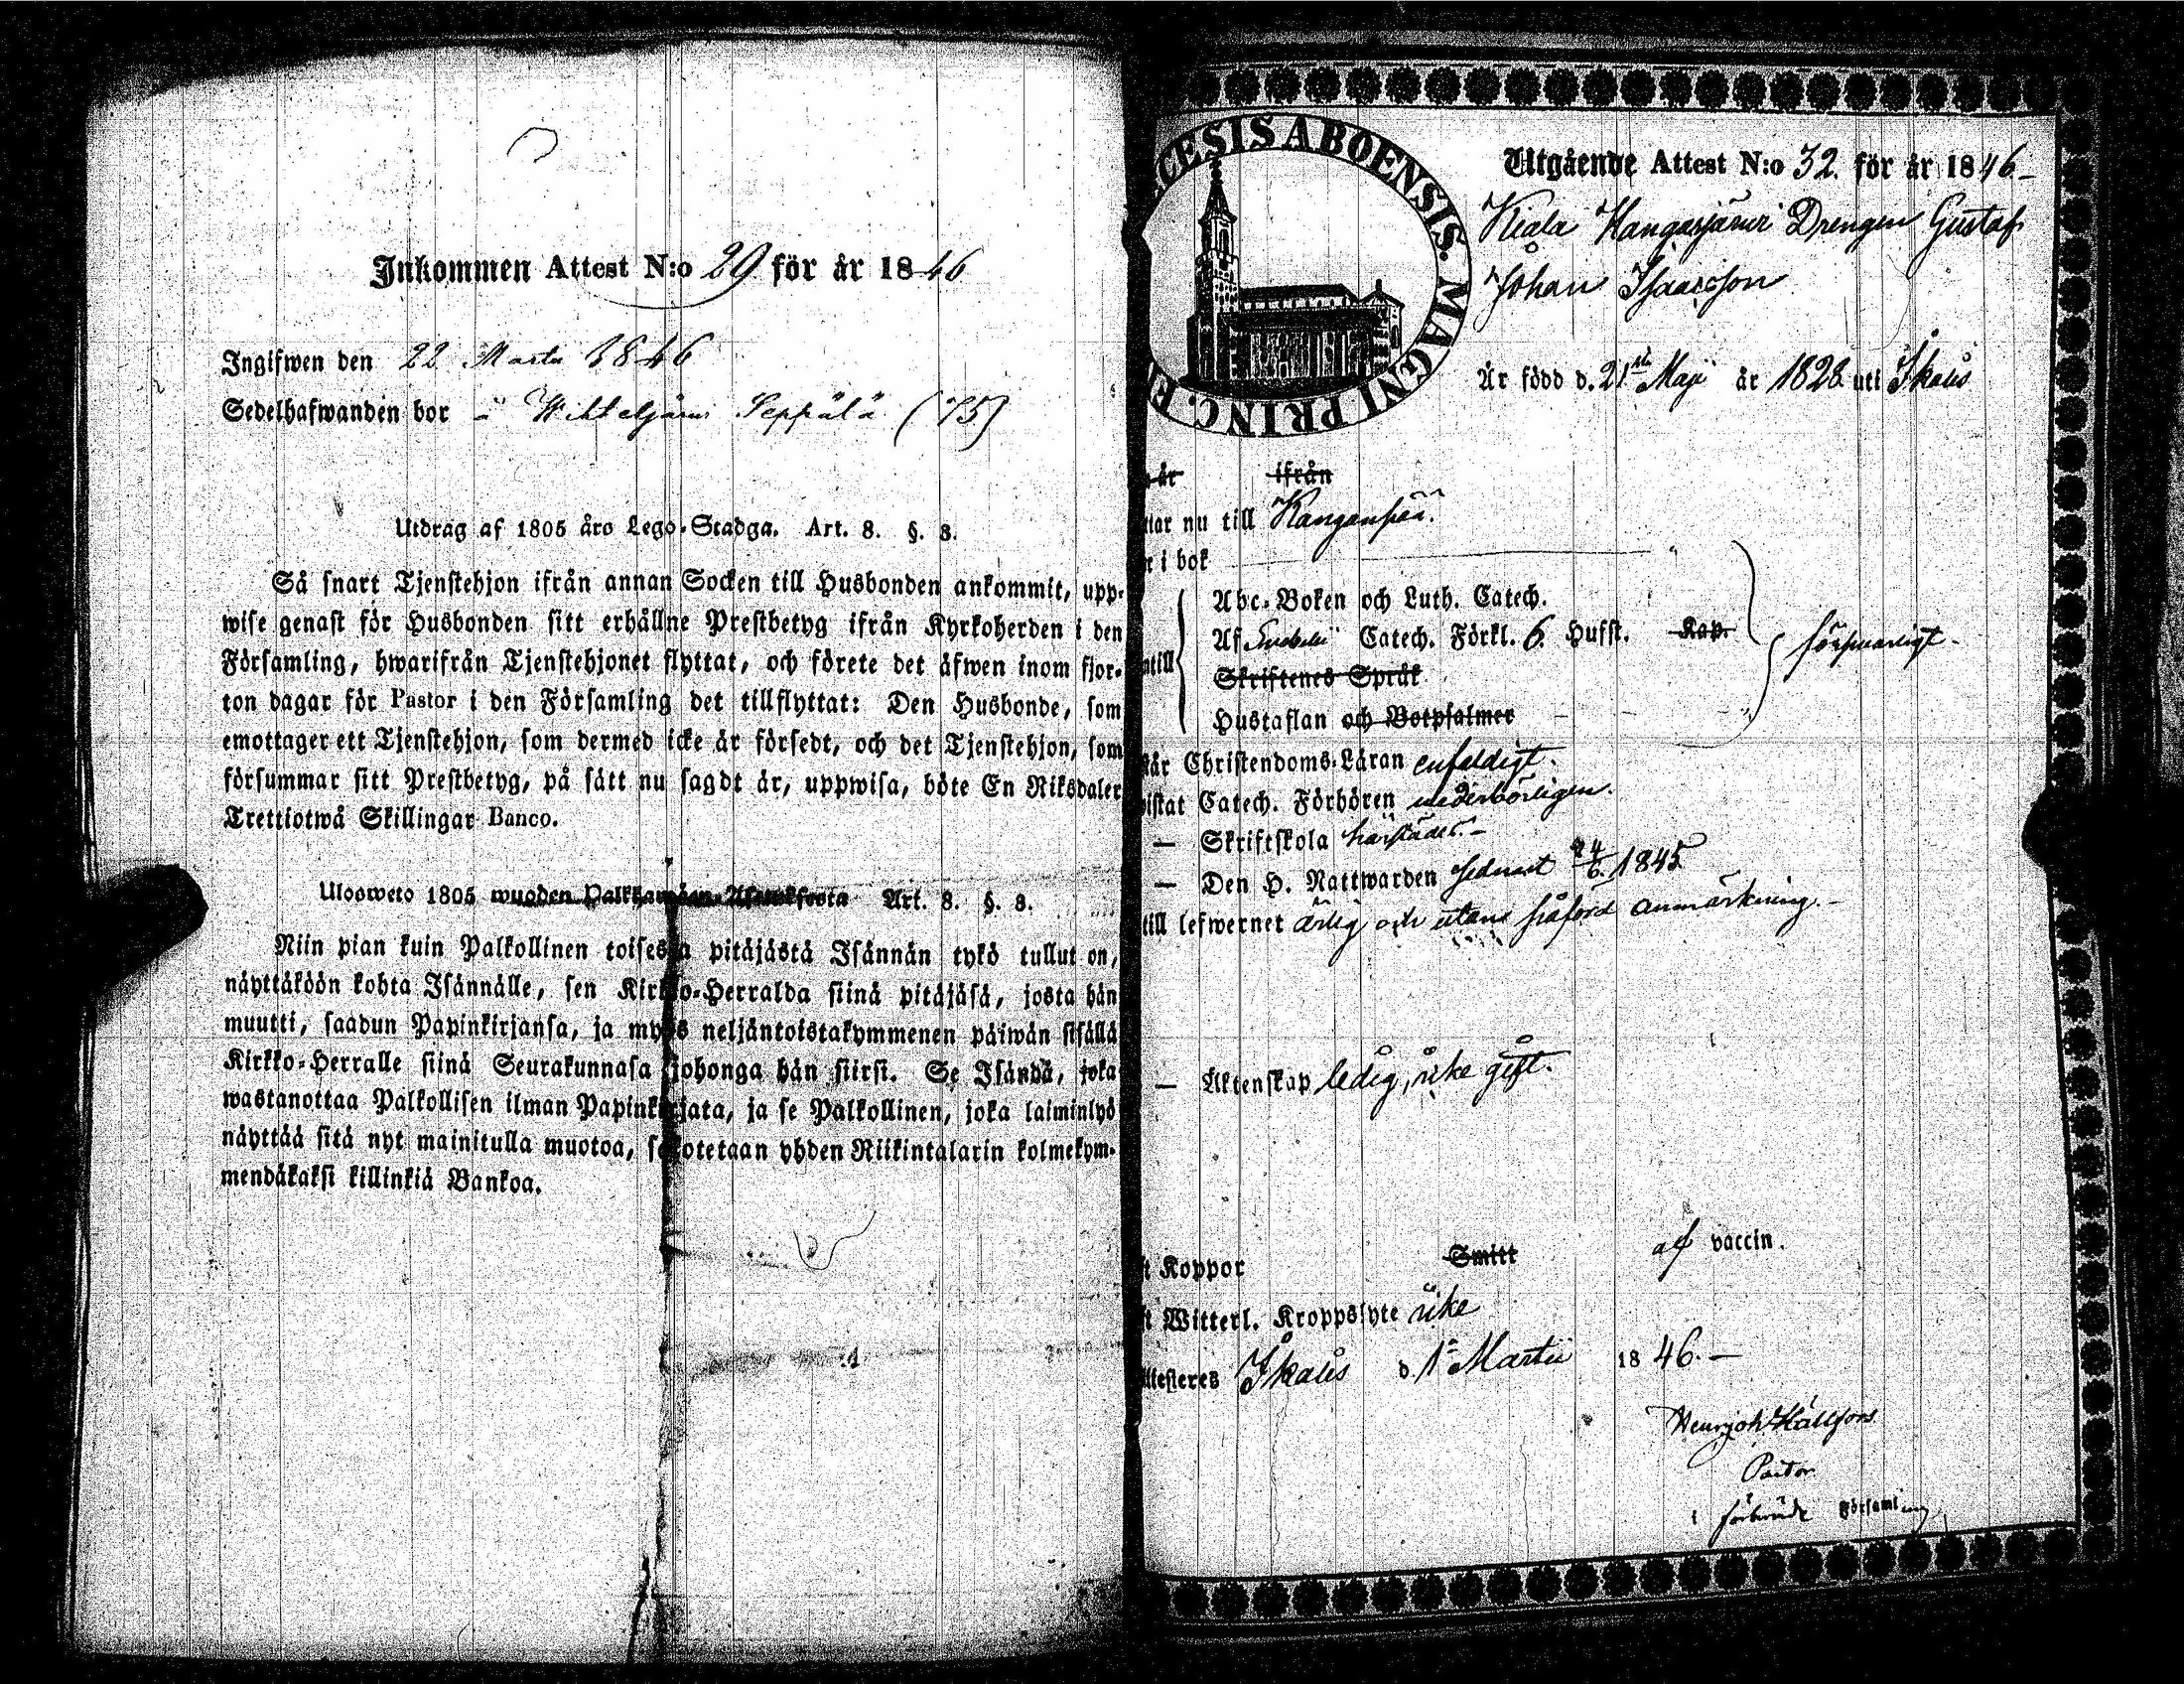 Inkommen Attest N:o 29 för år 1846
Ingifwen den 22 Martii 1846
Sedelhafwanden bor i Wihteljärvi Seppälä (75)
Utdrag af 1805 års Lego-Stadga. Art. 8. §. 3.
Så snart Tjenstehjon ifrån annan Socken till Husbonden ankommit, upp-
wise genast för Husbonden sitt erhållne Prestbetyg ifrån Kyrkoherden i den
Församling, hwarifrån Tjenstehjonet flyttat, och förete det äfwen inom fjor-
ton dagar för Pastor i den Församling det tillflyttat: Den Husbonde, som
emottager ett Tjenstehjon, som dermed icke är försedt, och det Tjenstehjon, som
försummar sitt Prestbetyg, på sått nu sagdt är, uppwisa, böte En Riksdaler
Trettiotwå Skillingar Banco.
Uloosweto 1805 wuoden Art. 8. §. 3.
Niin pian kuin Palkollinen toisesta pitäjästä Isännän tykö tullut on,
näyttäköön kohta Isännälle, sen Kirkko-Herralda siinä pitäjäsä, josta hän
muutti, saadun Papinkirjansa, ja myös neljäntoistakymmenen päiwän sisällä
Kirkko-Herralle siinä Seurakunnasa johonga hän siirsi. Se Isändä, joka
wastanottaa Palkollisen ilman Papinkirjata, ja se Palkollinen, joka laiminlyö
näyttää sitä nyt mainitulla muotoa, sakotetaan yhden Riikintalarin kolmekym-
mendäkaksi killinkiä Bankoa.
CESIS ABOENSIS. MAGNI PRINC.
Utgående Attest N:o 32. för år 1846
Drengen Gustaf
Johan Isaacsson
Är född d. 21 Maji år 1828 uti Ikalis
år ifrån
tar nu till Kanganpää.
r i bok
Abc-Boken och Luth. Catech.
Af Svebelii Catech. Förkl. 6 Hufst. Kap.
försvarligt
ntill
Skriftenes Språk
Hustaflan och Botpsalmer
år Christendoms-Läran enfaldigt.
istat Catech. Förhören vederbörligen.
— Skriftskola härstädes.
— Den H. Nattwarden sednast 24/6. 1845
till lefwernet ärlig och utan anmärkning.
— Äktenskap ledig, icke gift.
t Koppor Smitt af vaccin.
t Witterl. Kroppslyte icke
ttesteres Ikalis d. 1 Martii 1846.
Hällfors
Pastor
i Församling